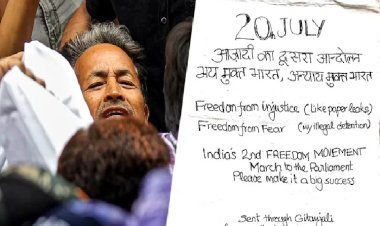 20 JULY
आज़ादी का दूसरा आन्दोलन
भय मुक्त भारत, अन्याय मुक्त भारत
Freedom from injustice (like paper leaks)
Freedom from Fear (my illegal detention)
India's 2nd FREEDOM MOVEMENT
March to the Parliament
Please make it a big success
Sent through Gitanjali